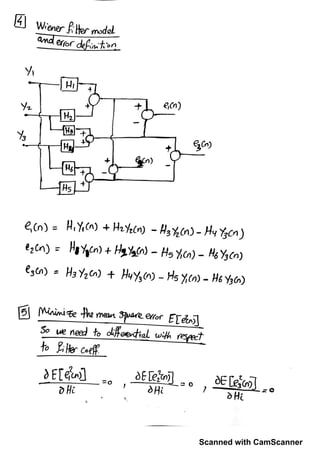 4 Wiener filter model
and error definition
y₁
H₁
+
+
y₂
H₂
+
e₁(n)
−
y₃
H₃
+
+
H₄
+
e₃(n)
−
H₆
+
+
e₂(n)
−
H₅
e₁(n) = H₁y₁(n) + H₂y₂(n) − H₃y₂(n) − H₄y₃(n)
e₂(n) = H₁y₁(n) + H₂y₂(n) − H₅y₁(n) − H₆y₃(n)
e₃(n) = H₃y₂(n) + H₄y₃(n) − H₅y₁(n) − H₆y₃(n)
5 Minimise the mean square error E[e²(n)]
So we need to differential with respect
to filter coeff.
∂E[e₁²(n)]/∂Hi = 0 , ∂E[e₂²(n)]/∂Hi = 0 , ∂E[e₃²(n)]/∂Hi = 0
Scanned with CamScanner